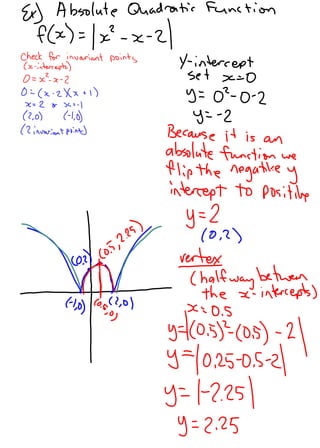 Ex) Absolute Quadratic Function
f(x) = |x² - x - 2|
Check for invariant points
(x-intercepts)
0 = x² - x - 2
0 = (x - 2)(x + 1)
x = 2 or x = -1
(2,0) (-1,0)
(2 invariant points)
y-intercept
set x=0
y = 0² - 0 - 2
y = -2
Because it is an
absolute function we
flip the negative y
intercept to positive
y = 2
(0,2)
vertex
(halfway between
the x-intercepts)
x = 0.5
y = |(0.5)² - (0.5) - 2|
y = |0.25 - 0.5 - 2|
y = |-2.25|
y = 2.25
(0,2)
(0.5, 2.25)
(-1,0)
(0.5, 0)
(2,0)